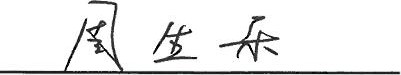 周生乐